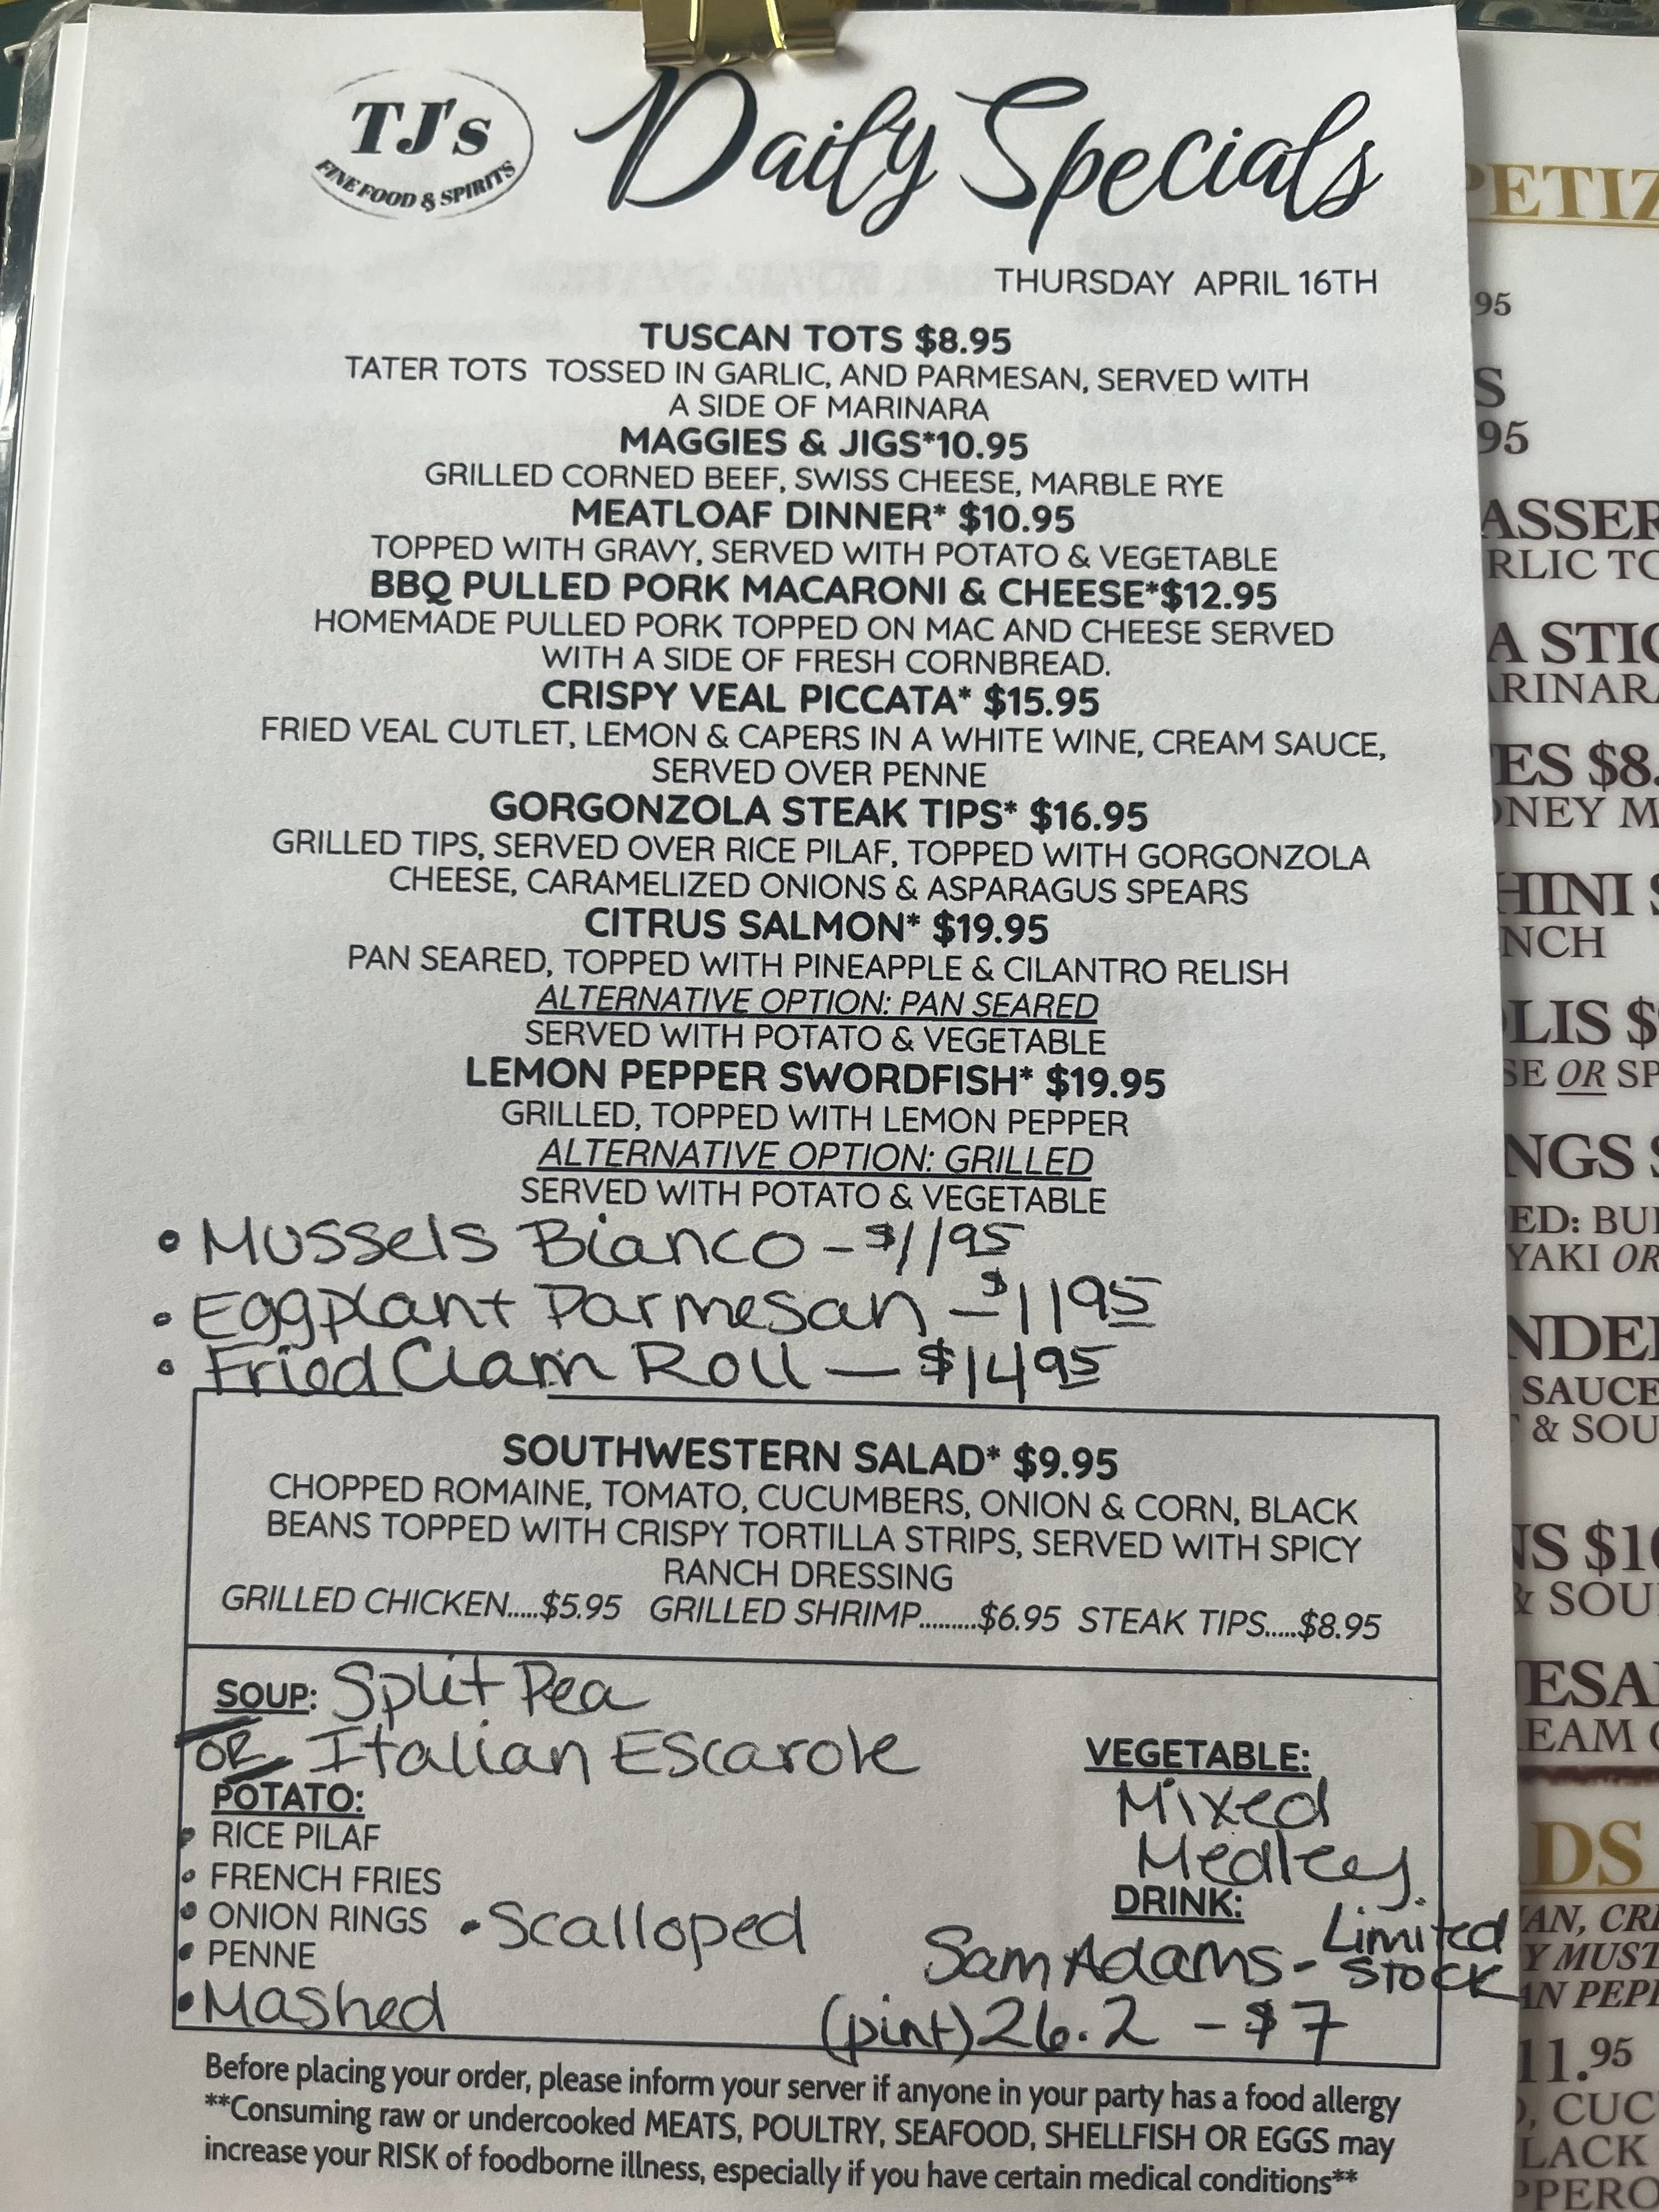 TJ's
FINE FOOD & SPIRITS
Daily Specials
THURSDAY APRIL 16TH
TUSCAN TOTS $8.95
TATER TOTS TOSSED IN GARLIC, AND PARMESAN, SERVED WITH
A SIDE OF MARINARA
MAGGIES & JIGS*10.95
GRILLED CORNED BEEF, SWISS CHEESE, MARBLE RYE
MEATLOAF DINNER* $10.95
TOPPED WITH GRAVY, SERVED WITH POTATO & VEGETABLE
BBQ PULLED PORK MACARONI & CHEESE*$12.95
HOMEMADE PULLED PORK TOPPED ON MAC AND CHEESE SERVED
WITH A SIDE OF FRESH CORNBREAD.
CRISPY VEAL PICCATA* $15.95
FRIED VEAL CUTLET, LEMON & CAPERS IN A WHITE WINE, CREAM SAUCE,
SERVED OVER PENNE
GORGONZOLA STEAK TIPS* $16.95
GRILLED TIPS, SERVED OVER RICE PILAF, TOPPED WITH GORGONZOLA
CHEESE, CARAMELIZED ONIONS & ASPARAGUS SPEARS
CITRUS SALMON* $19.95
PAN SEARED, TOPPED WITH PINEAPPLE & CILANTRO RELISH
ALTERNATIVE OPTION: PAN SEARED
SERVED WITH POTATO & VEGETABLE
LEMON PEPPER SWORDFISH* $19.95
GRILLED, TOPPED WITH LEMON PEPPER
ALTERNATIVE OPTION: GRILLED
SERVED WITH POTATO & VEGETABLE
• Mussels Bianco - $11 95
• Eggplant Parmesan - $11 95
• Fried Clam Roll - $14 95
SOUTHWESTERN SALAD* $9.95
CHOPPED ROMAINE, TOMATO, CUCUMBERS, ONION & CORN, BLACK
BEANS TOPPED WITH CRISPY TORTILLA STRIPS, SERVED WITH SPICY
RANCH DRESSING
GRILLED CHICKEN.....$5.95 GRILLED SHRIMP.........$6.95 STEAK TIPS.....$8.95
SOUP: Split Pea
OR Italian Escarole
POTATO:
• RICE PILAF
• FRENCH FRIES
• ONION RINGS • Scalloped
• PENNE
• Mashed
VEGETABLE:
Mixed
Medley
DRINK:
Sam Adams - Limited Stock
(pint) 26.2 - $7
Before placing your order, please inform your server if anyone in your party has a food allergy
**Consuming raw or undercooked MEATS, POULTRY, SEAFOOD, SHELLFISH OR EGGS may
increase your RISK of foodborne illness, especially if you have certain medical conditions**
95
95
$8.
NCH
OR
OR
SAUCE
& SOU
$10
& SOU
11.95